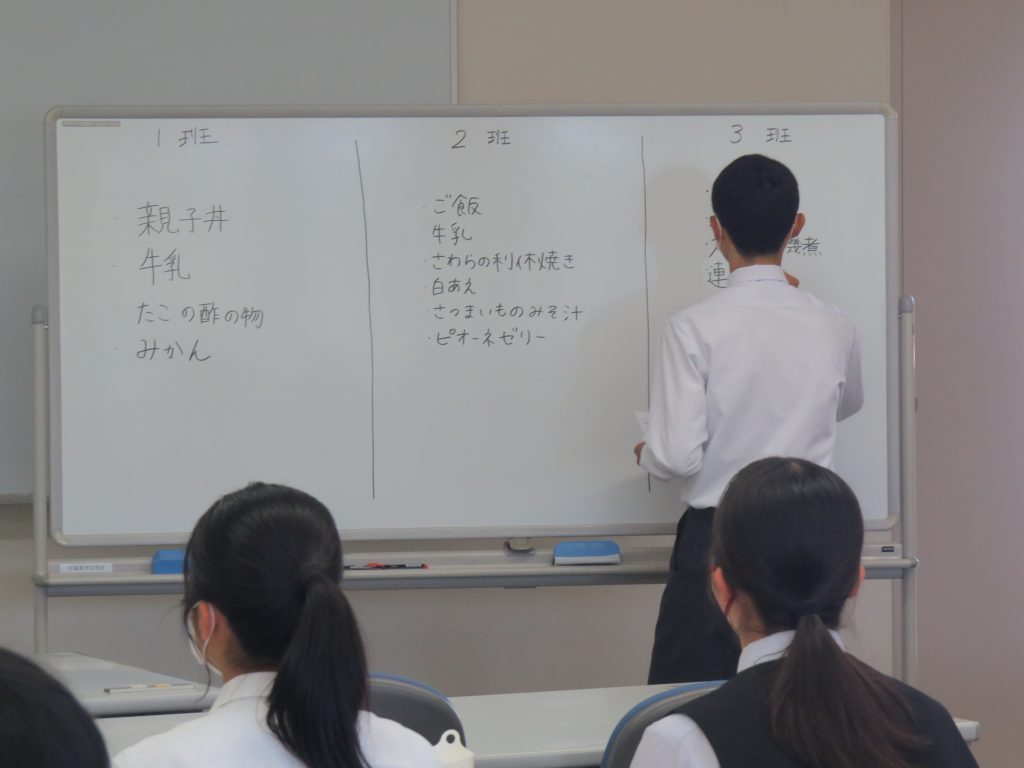 1 班
親子丼
牛乳
たこの酢の物
みかん
2 班
・ご飯
・牛乳
・さわらの利休焼き
・白あえ
・さつまいものみそ汁
・ピオーネゼリー
3 班
幾煮
連